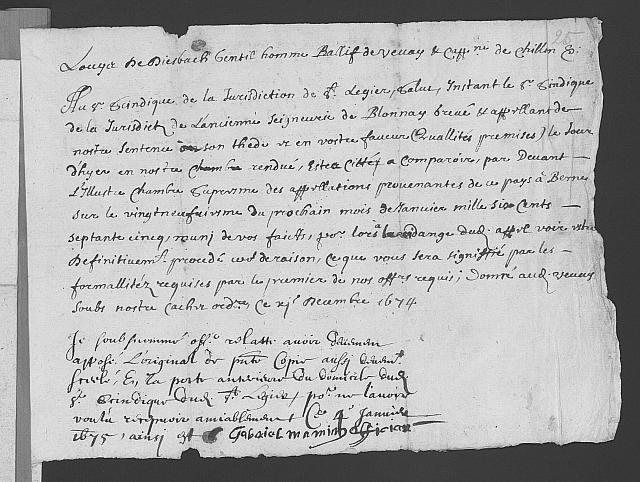 25
Louys De Diesbach Gentil homme Ballif de Vevay & Capp.ne de Chillon &:
Au Sr Scindique de la Jurisdiction de St Legier, Salut, Instant le Sr Scindique
de la Jurisdict. de L'ancienne Seigneurie de Blonnay & appellant de
nostre Sentence son thede et en vostre faveur (Quallités premises) le Jour
d'hyer en nostre Chambre rendue, Estes Cittez a Comparoir, par Devant
L'Illustre Chambre Supresme des appellations provenantes de ce pays a Berne
sur le vingtneufviesme du prochain mois de Janvier mille Six Cents
septante cinq, muni de vos faicts, por lors a dud. appel voir estre
Definitivemt. procedé de raison, ce que vous sera signiffié par les
formallitéz requises par le premier de nos offrs requis; Donné aud. Vevay
soubs nostre Cachet ordre, ce xje Decembre 1674
Je soubsnommé offr. relatte avoir
apposé L'original de pnte Copie aussy
, a La porte anterieure du domicile dud.
Sr Scindique dud. St Legier, por ne l'avoir
voulu recepvoir amiablement Ce Janvier
1675, ainsi est Gabriel officier